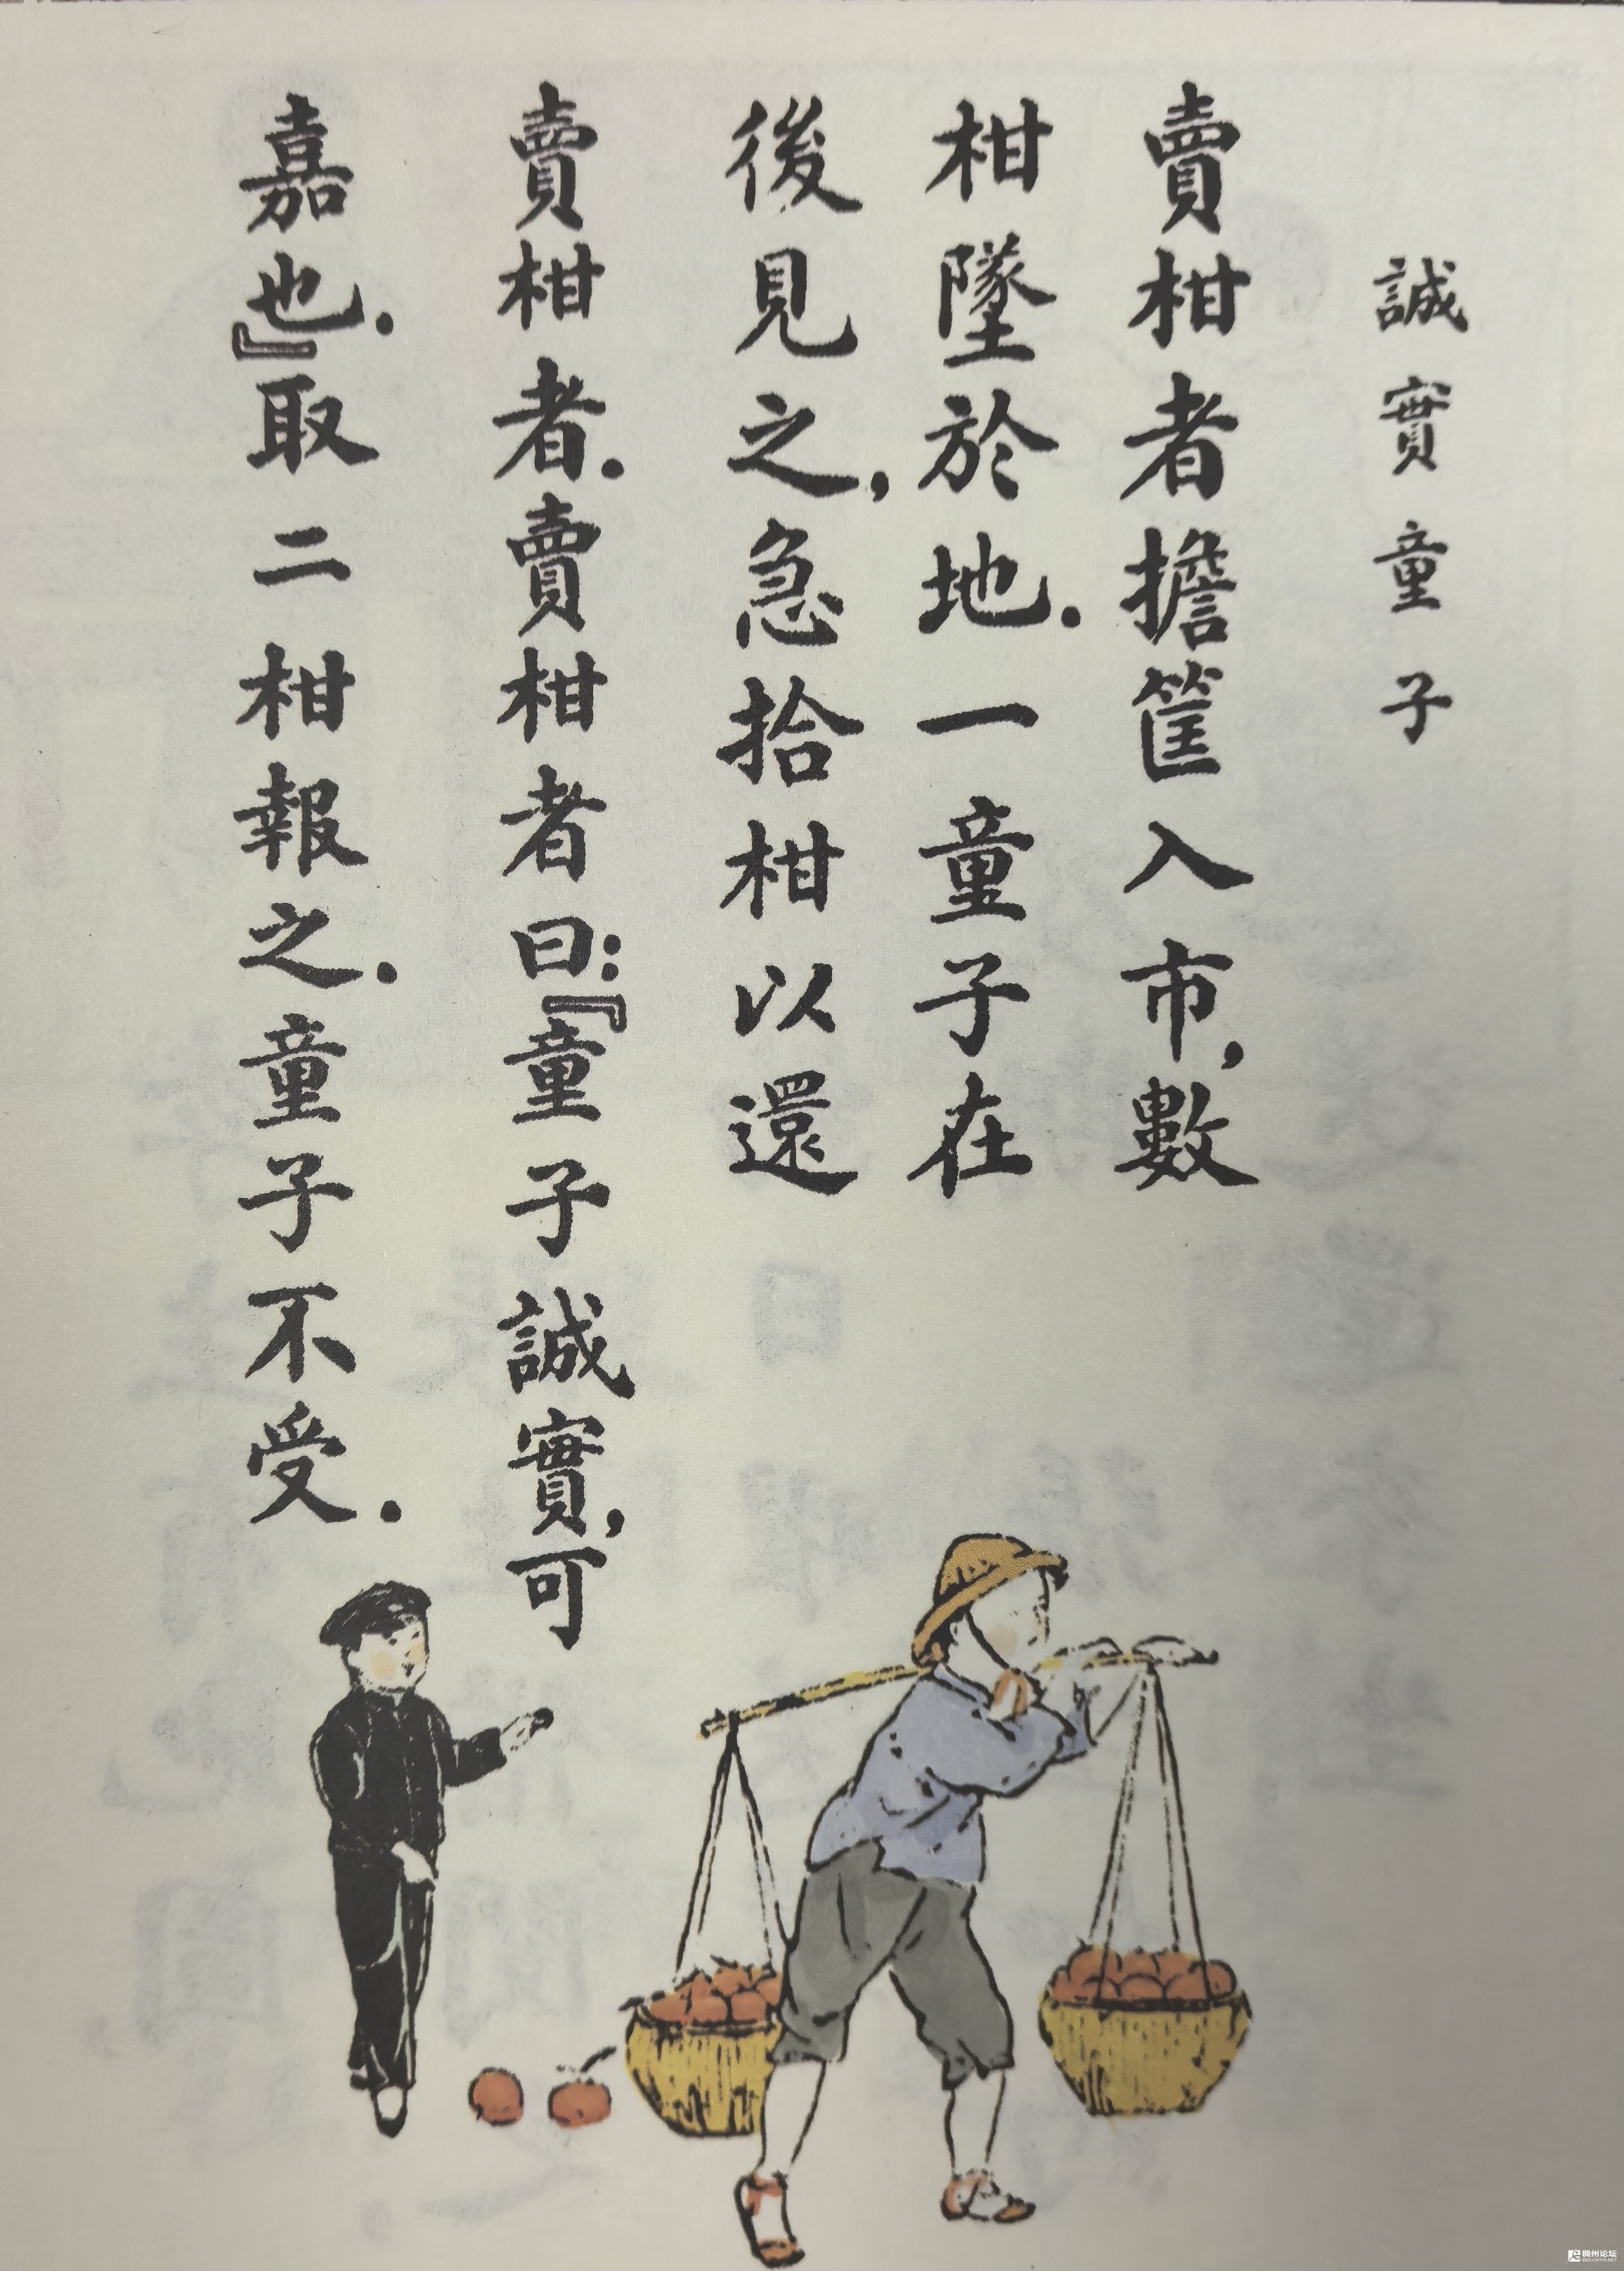 誠實童子
賣柑者擔筐入市,數
柑墜於地.一童子在
後見之,急拾柑以還
賣柑者.賣柑者曰:『童子誠實,可
嘉也.』取二柑報之.童子不受.
稠州论坛